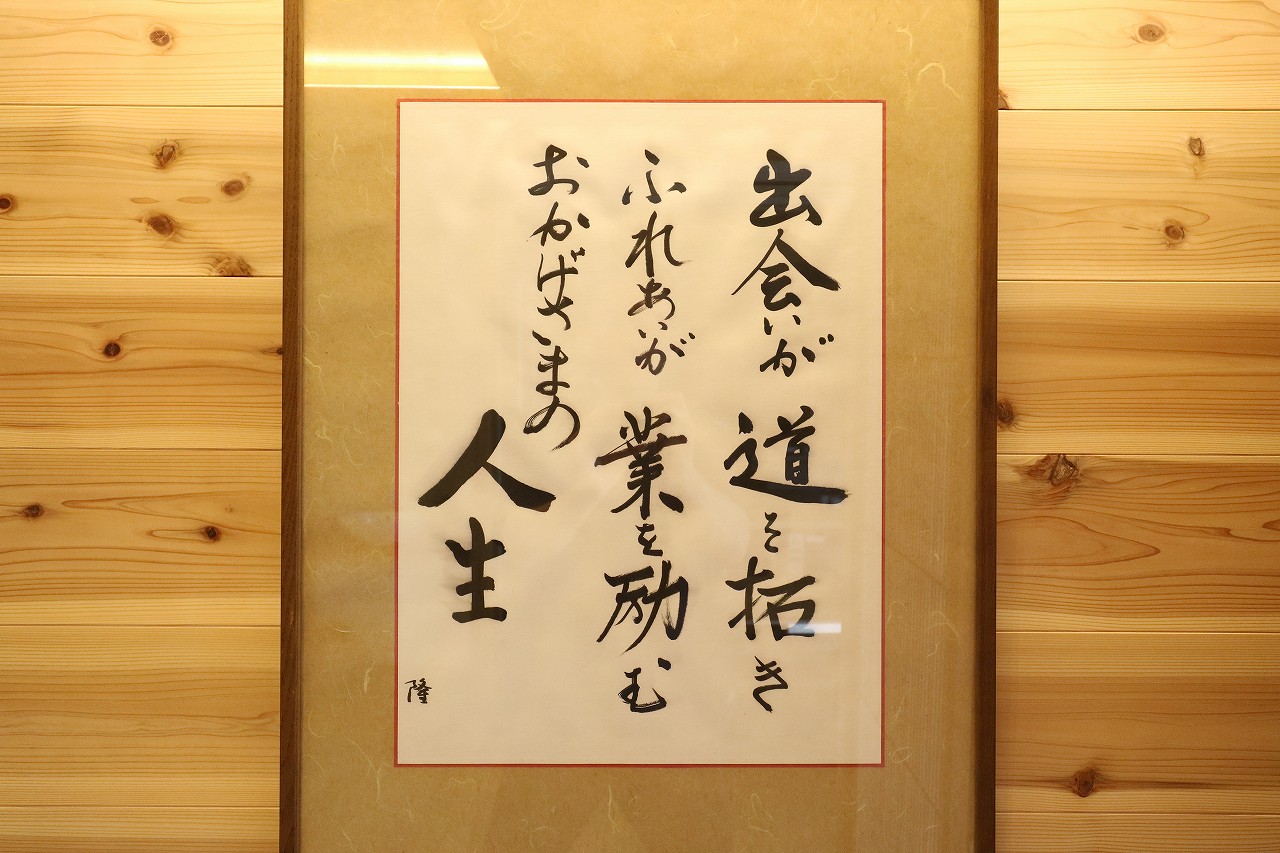 出会いが道を拓き
ふれあいが業を励む
おかげさまの
人生
隆